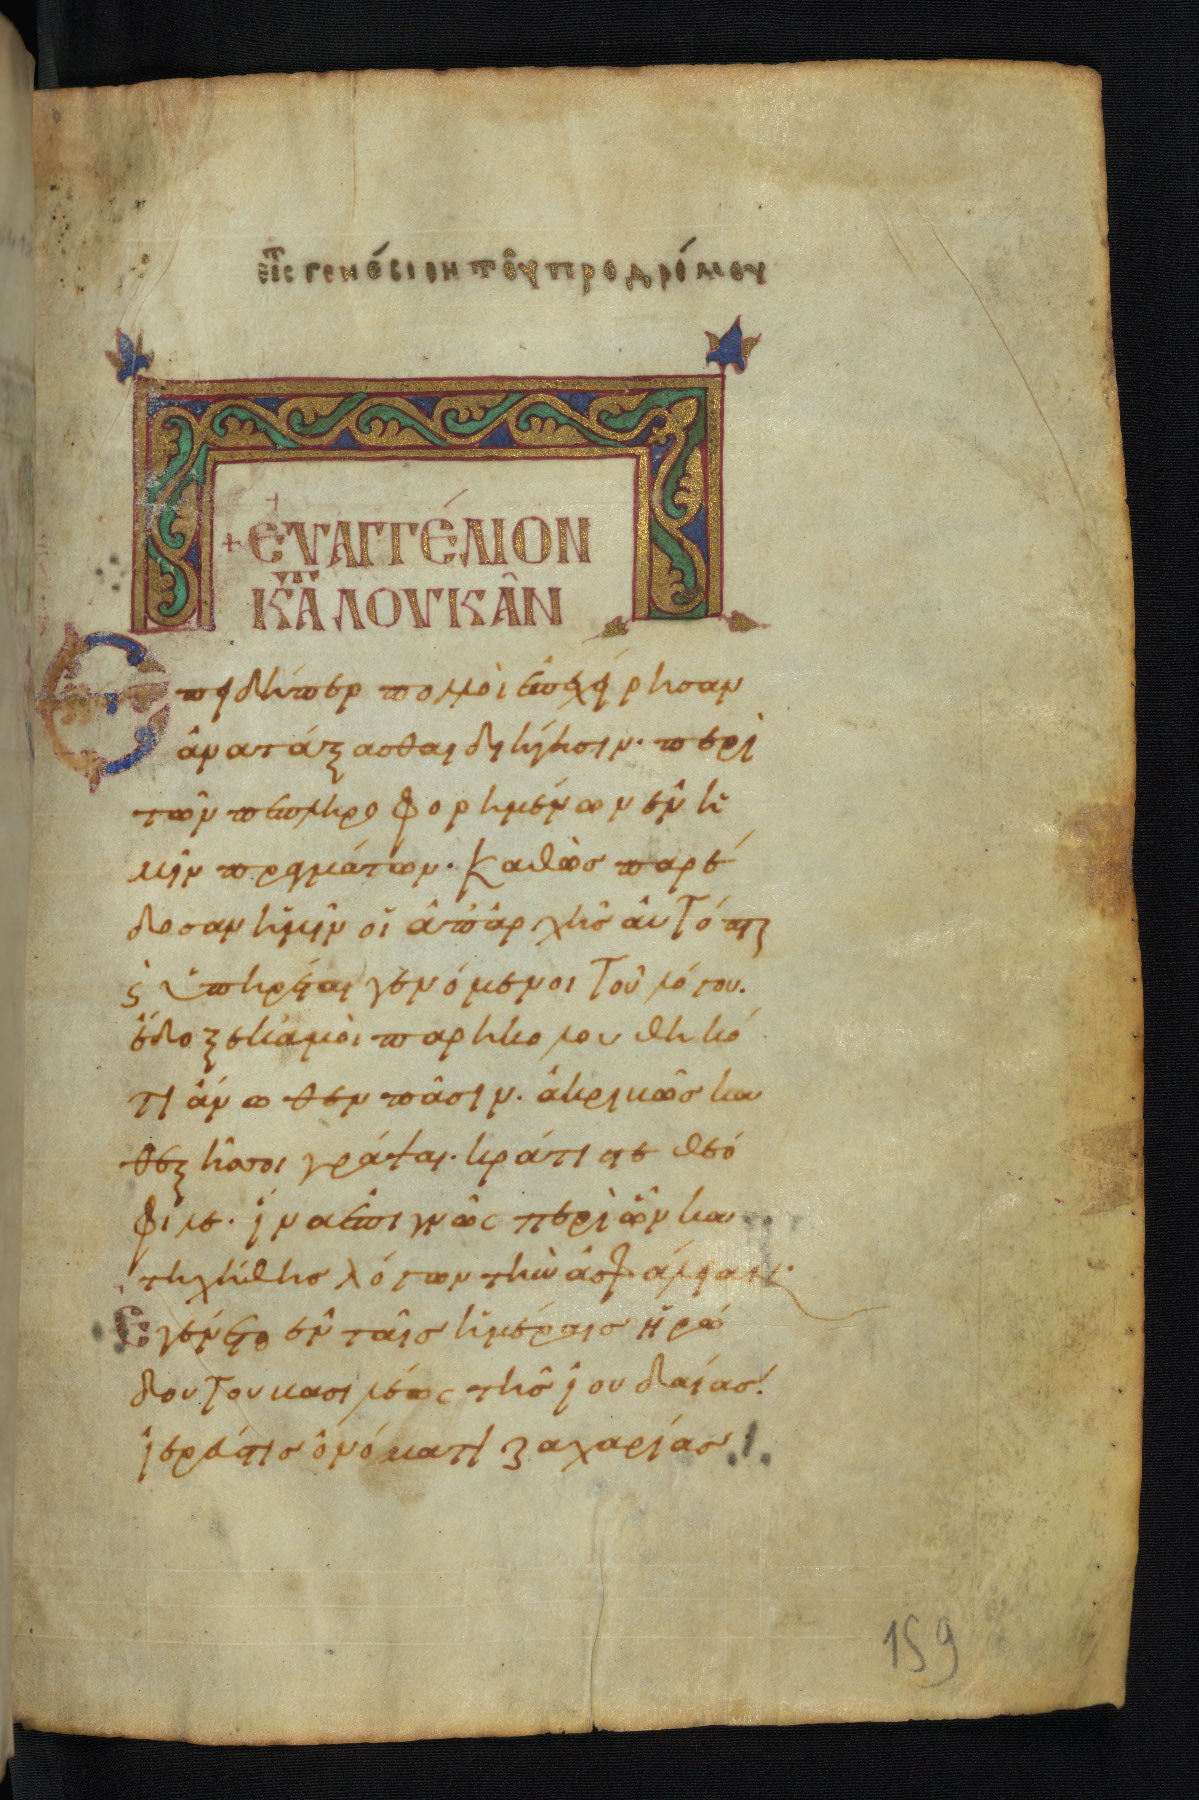 εἰς τ γενέσιον τοῦ προδρόμου
+ ΕὐΑΓΓΈΛΙΟΝ
ΚΑΤΑ ΛΟΥΚΑ͂Ν
Ἐπειδήπερ πολλοὶ ἐπεχείρησαν
ἀνατάξασθαι διήγησιν· περὶ
τῶν πεπληροφορημένων ἐν ἡ
μῖν πραγμάτων· Καθὼς παρέ
δοσαν ἡμῖν οἱ ἀπ' ἀρχῆς αὐτόπται
ϛ ὑπηρέται γενόμενοι τοῦ λόγου.
ἔδοξε κἀμοὶ παρηκολουθηκό
τι ἄνωθεν πᾶσιν. ἀκριβῶς κα
θεξῆς σοι γράψαι. κράτιστε θεό
φιλε. ἵνα ἐπιγνῷς περὶ ὧν κα
τηχήθης λόγων τὴν ἀσφάλειαν.
Ἐγένετο ἐν ταῖς ἡμέραις ἡρώ
δου τοῦ βασιλέως τῆς ἰουδαίας.
ἱερεύς τις ὀνόματι ζαχαρίας
159